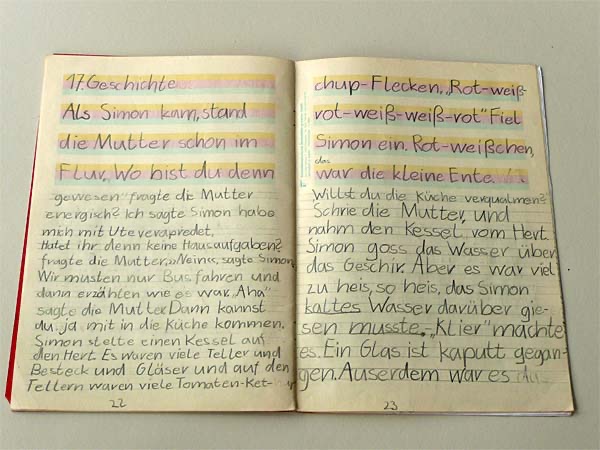 17. Geschichte
Als Simon kam, stand
die Mutter schon im
Flur. Wo bist du denn
gewesen" fragte die Mutter
energisch? Ich sagte Simon habe
mich mit Ute verapredet,
Habt ihr denn keine Hausaufgaben?
fragte die Mutter. „Nein", sagte Simon
Wir musten nur Bus fahren und
dann erzählten wie es war. „Aha"
sagte die Mutter. Dann kannst
du ja mit in die Küche kommen.
Simon stellte einen Kessel auf
den Hert. Es waren viele Teller und
Besteck und Gläser und auf den
Tellern waren viele Tomaten-Ket-
22
chup-Flecken, „Rot-weiß-
rot-weiß-weiß-rot" Fiel
Simon ein. Rot-weißchen,
das
war die kleine Ente.
Willst du die Küche verqualmen?
Schrie die Mutter, und
nahm den Kessel vom Hert.
Simon goss das Wasser über
das Geschir. Aber es war viel
zu heis, so heis, das Simon
kaltes Wasser darüber gie-
sen musste. „Klier" machte
es. Ein Glas ist kaputt gegan-
gen. Auserdem war es
23